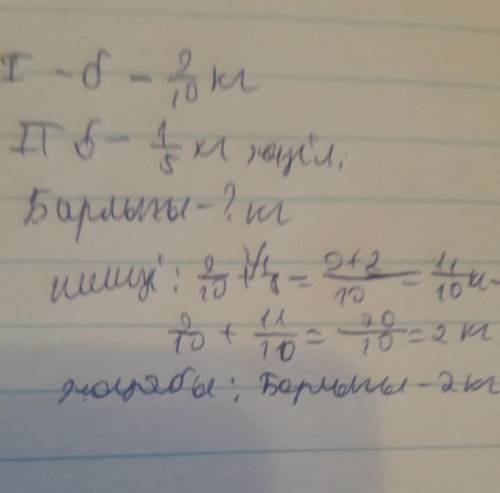 I - б - 9/10 кг
II б - 1/5 кг жеңіл.
Барлығы - ? кг
шешуі: 9/10 + 1/5 = 9+2/10 = 11/10 кг
9/10 + 11/10 = 20/10 = 2 кг
жауабы: Барлығы - 2 кг